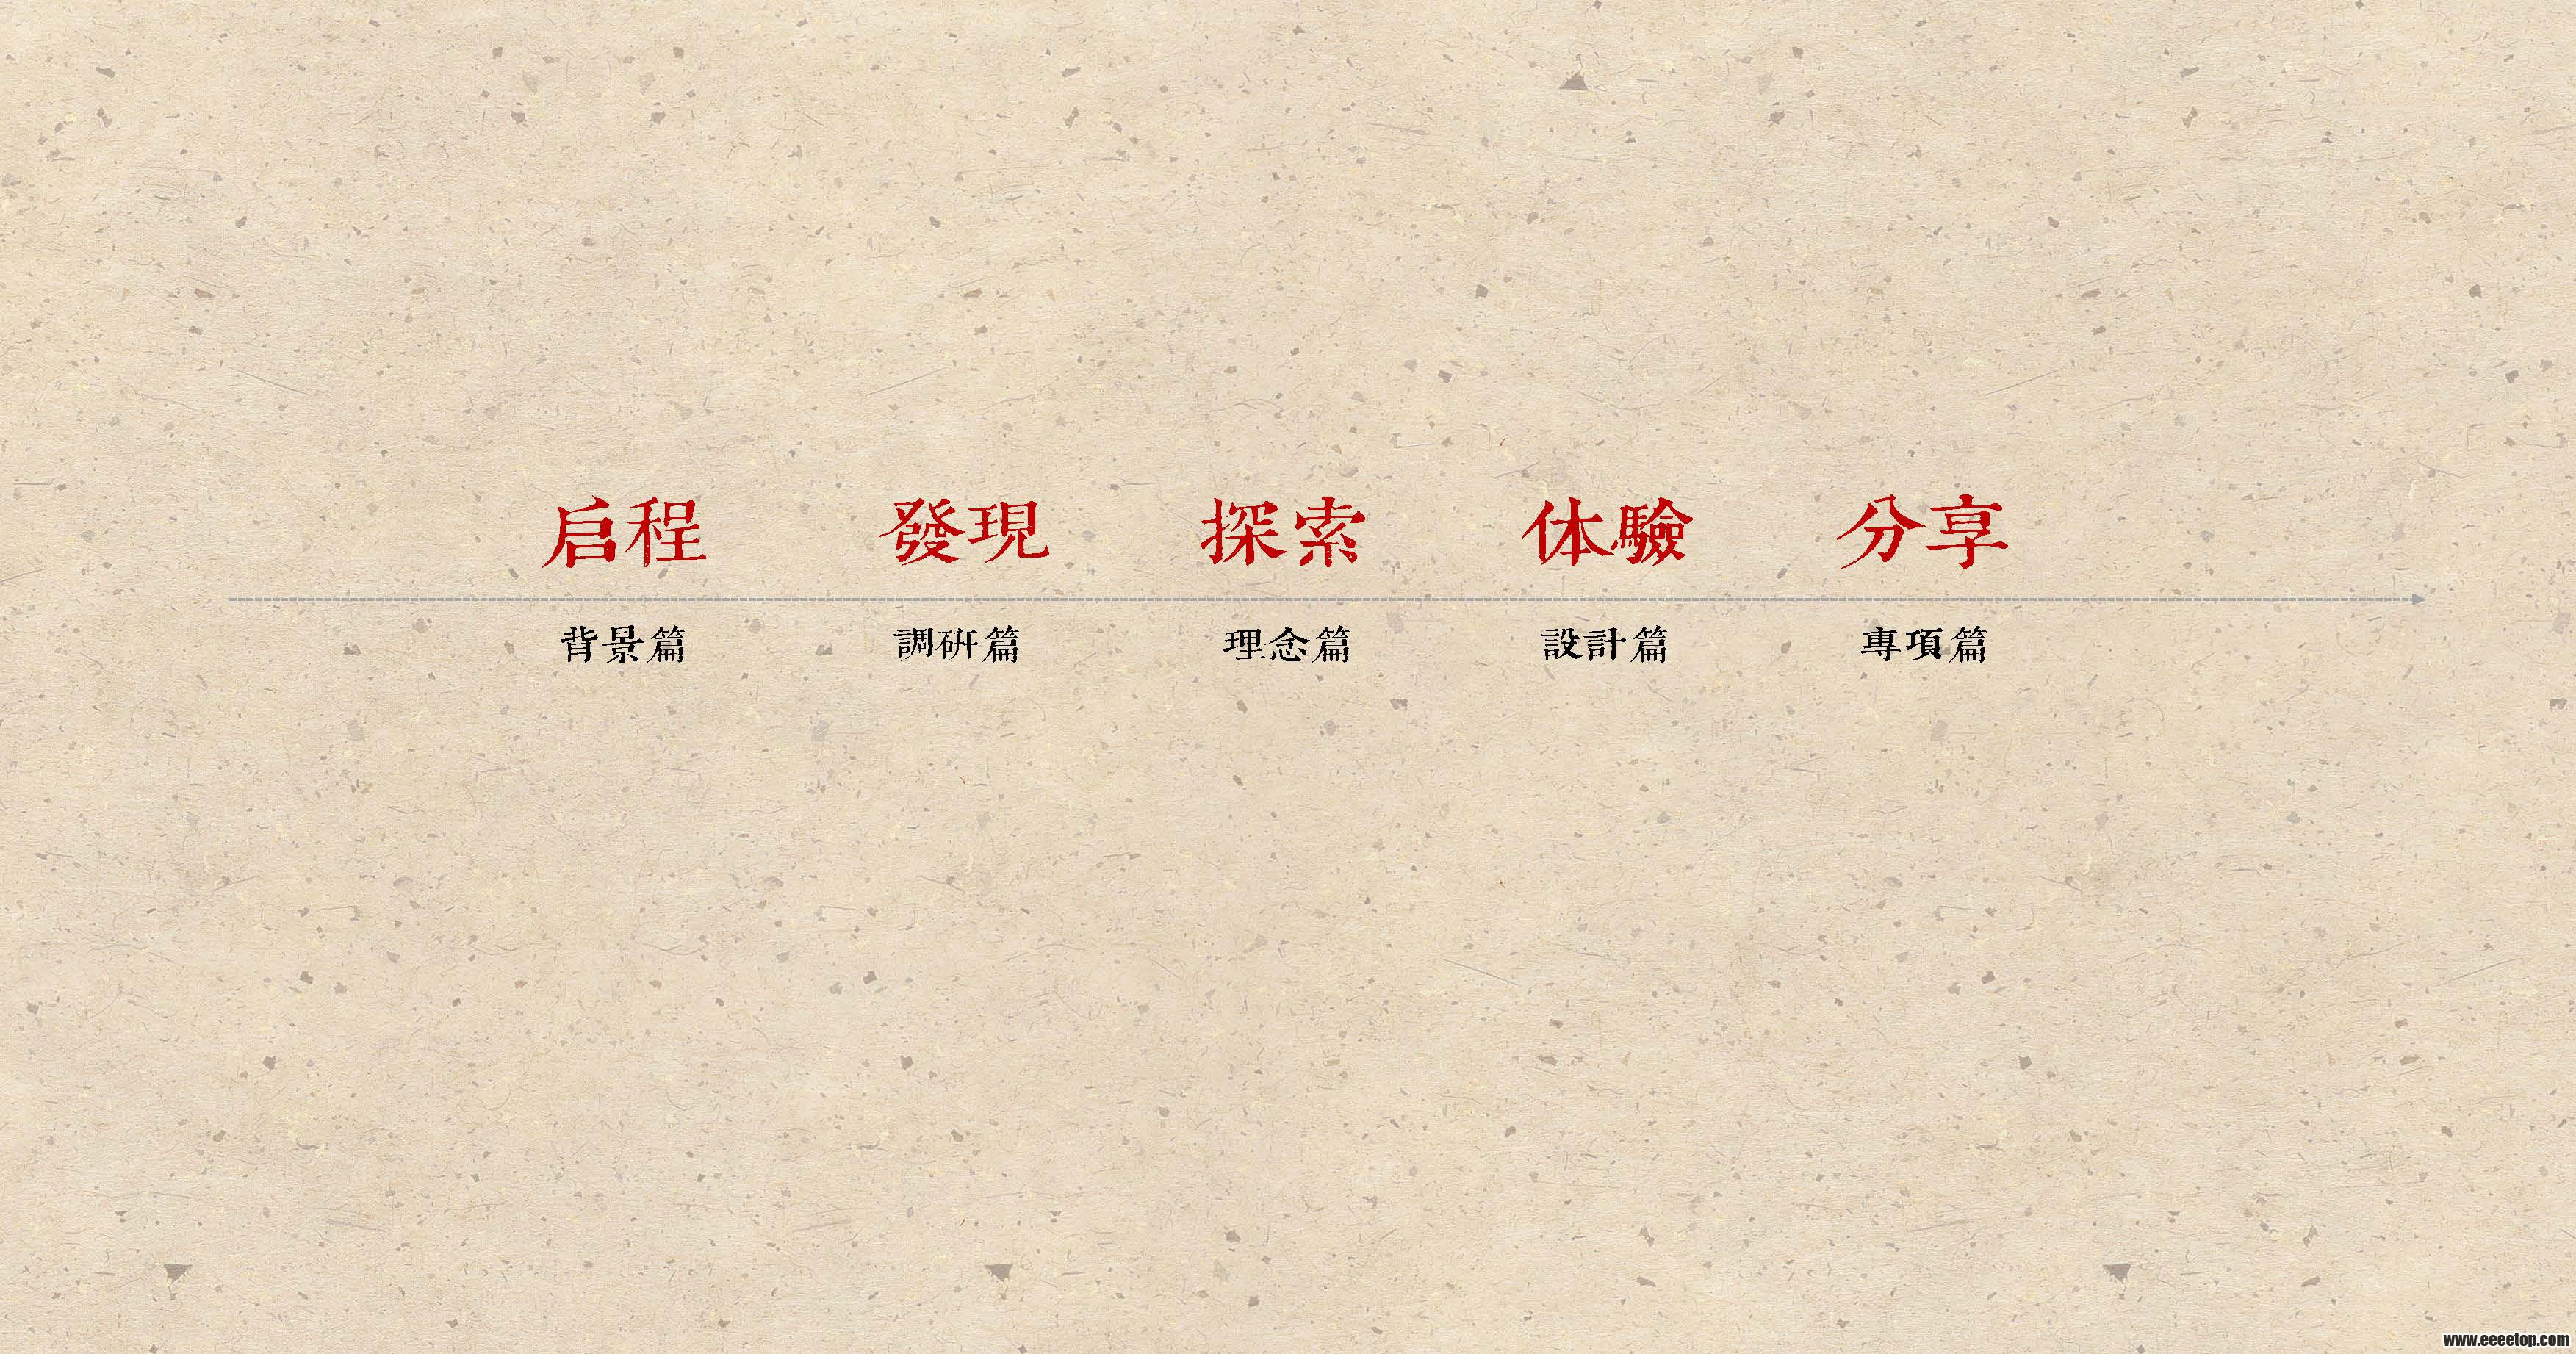 启程 發現 探索 体驗 分享
背景篇 調研篇 理念篇 設計篇 專項篇
www.eeeetop.com